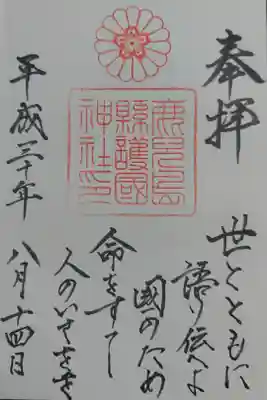 奉拝
世とともに
語り伝へよ
国のため
命をすてし
人のいさをを
鹿兒島
縣護國
神社印
平成三十年
八月十四日